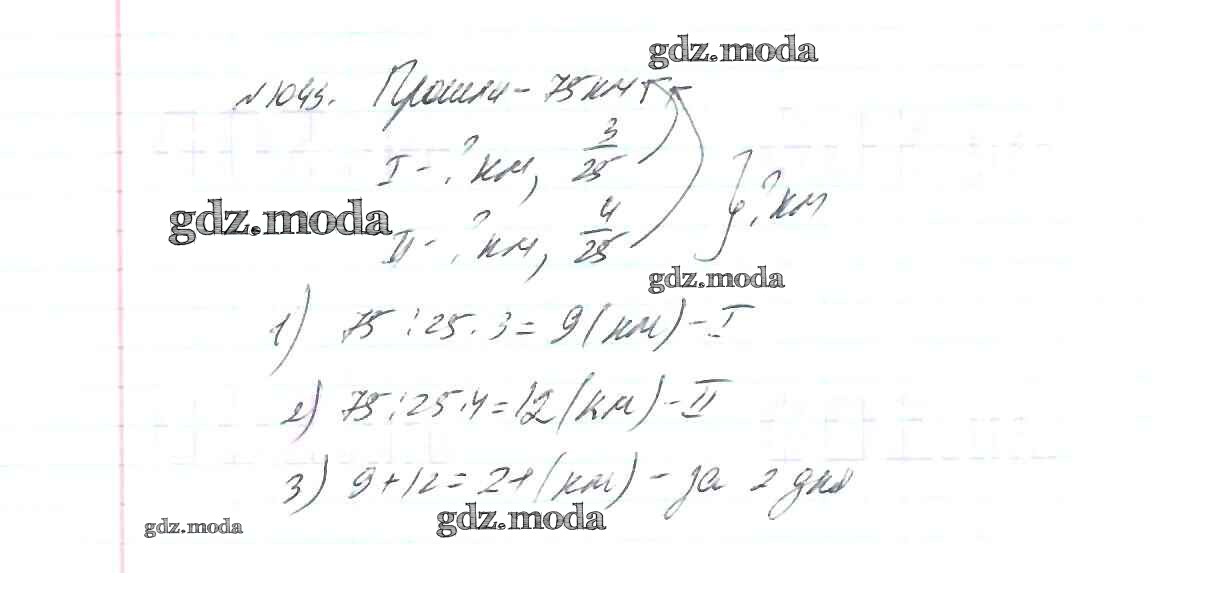 gdz.moda
Прошли - 75 км
I - ? км, 3/25
gdz.moda
II - ? км, 4/25
} ? км
gdz.moda
1) 75 : 25 · 3 = 9 (км) - I
2) 75 : 25 · 4 = 12 (км) - II
3) 9 + 12 = 21 (км) - за 2 дня
gdz.moda
gdz.moda